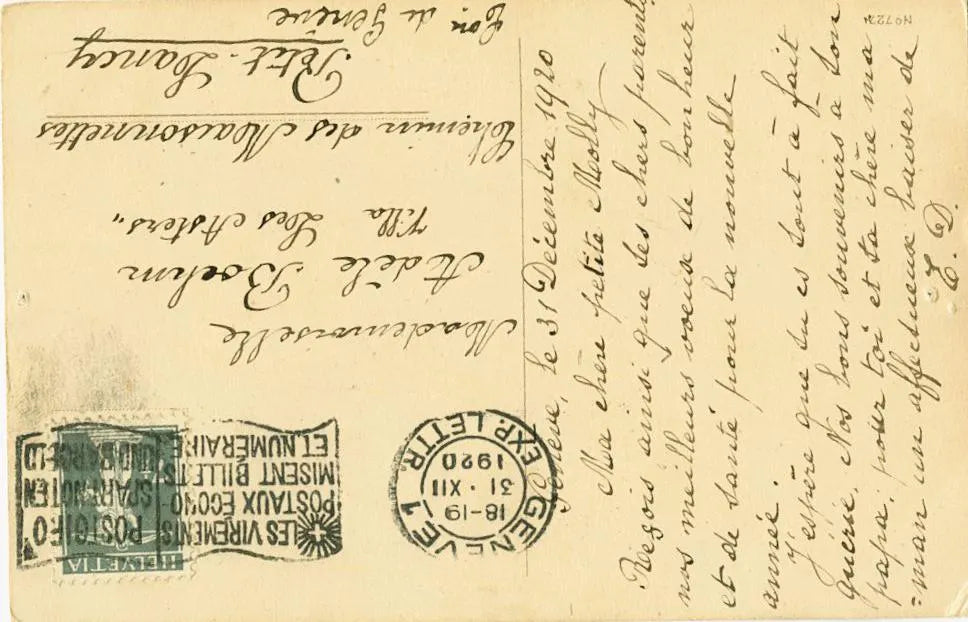 Genève, le 31 Décembre 1920
Ma chère petite Molly
Reçois ainsi que tes chers parents
nos meilleurs voeux de bonheur
et de santé pour la nouvelle
année.
J'espère que tu es tout à fait
guérie. Nos bons souvenirs à ton
papa, pour toi et ta chère ma
=man un affectueux baiser de
E. D.
Mademoiselle
Adèle Boehm
Villa Les Asters„
Chemin des Maisonnettes
Petit-Lancy
Con. de Genève
GENÈVE 1
18-19
31·XII
1920
EXP. LETTR.
LES VIREMENTS
POSTAUX ECONO-
MISENT BILLETS
ET NUMERAIRE
POSTGIRO
SPART NOTEN
UND BARGELD
HELVETIA
No 727